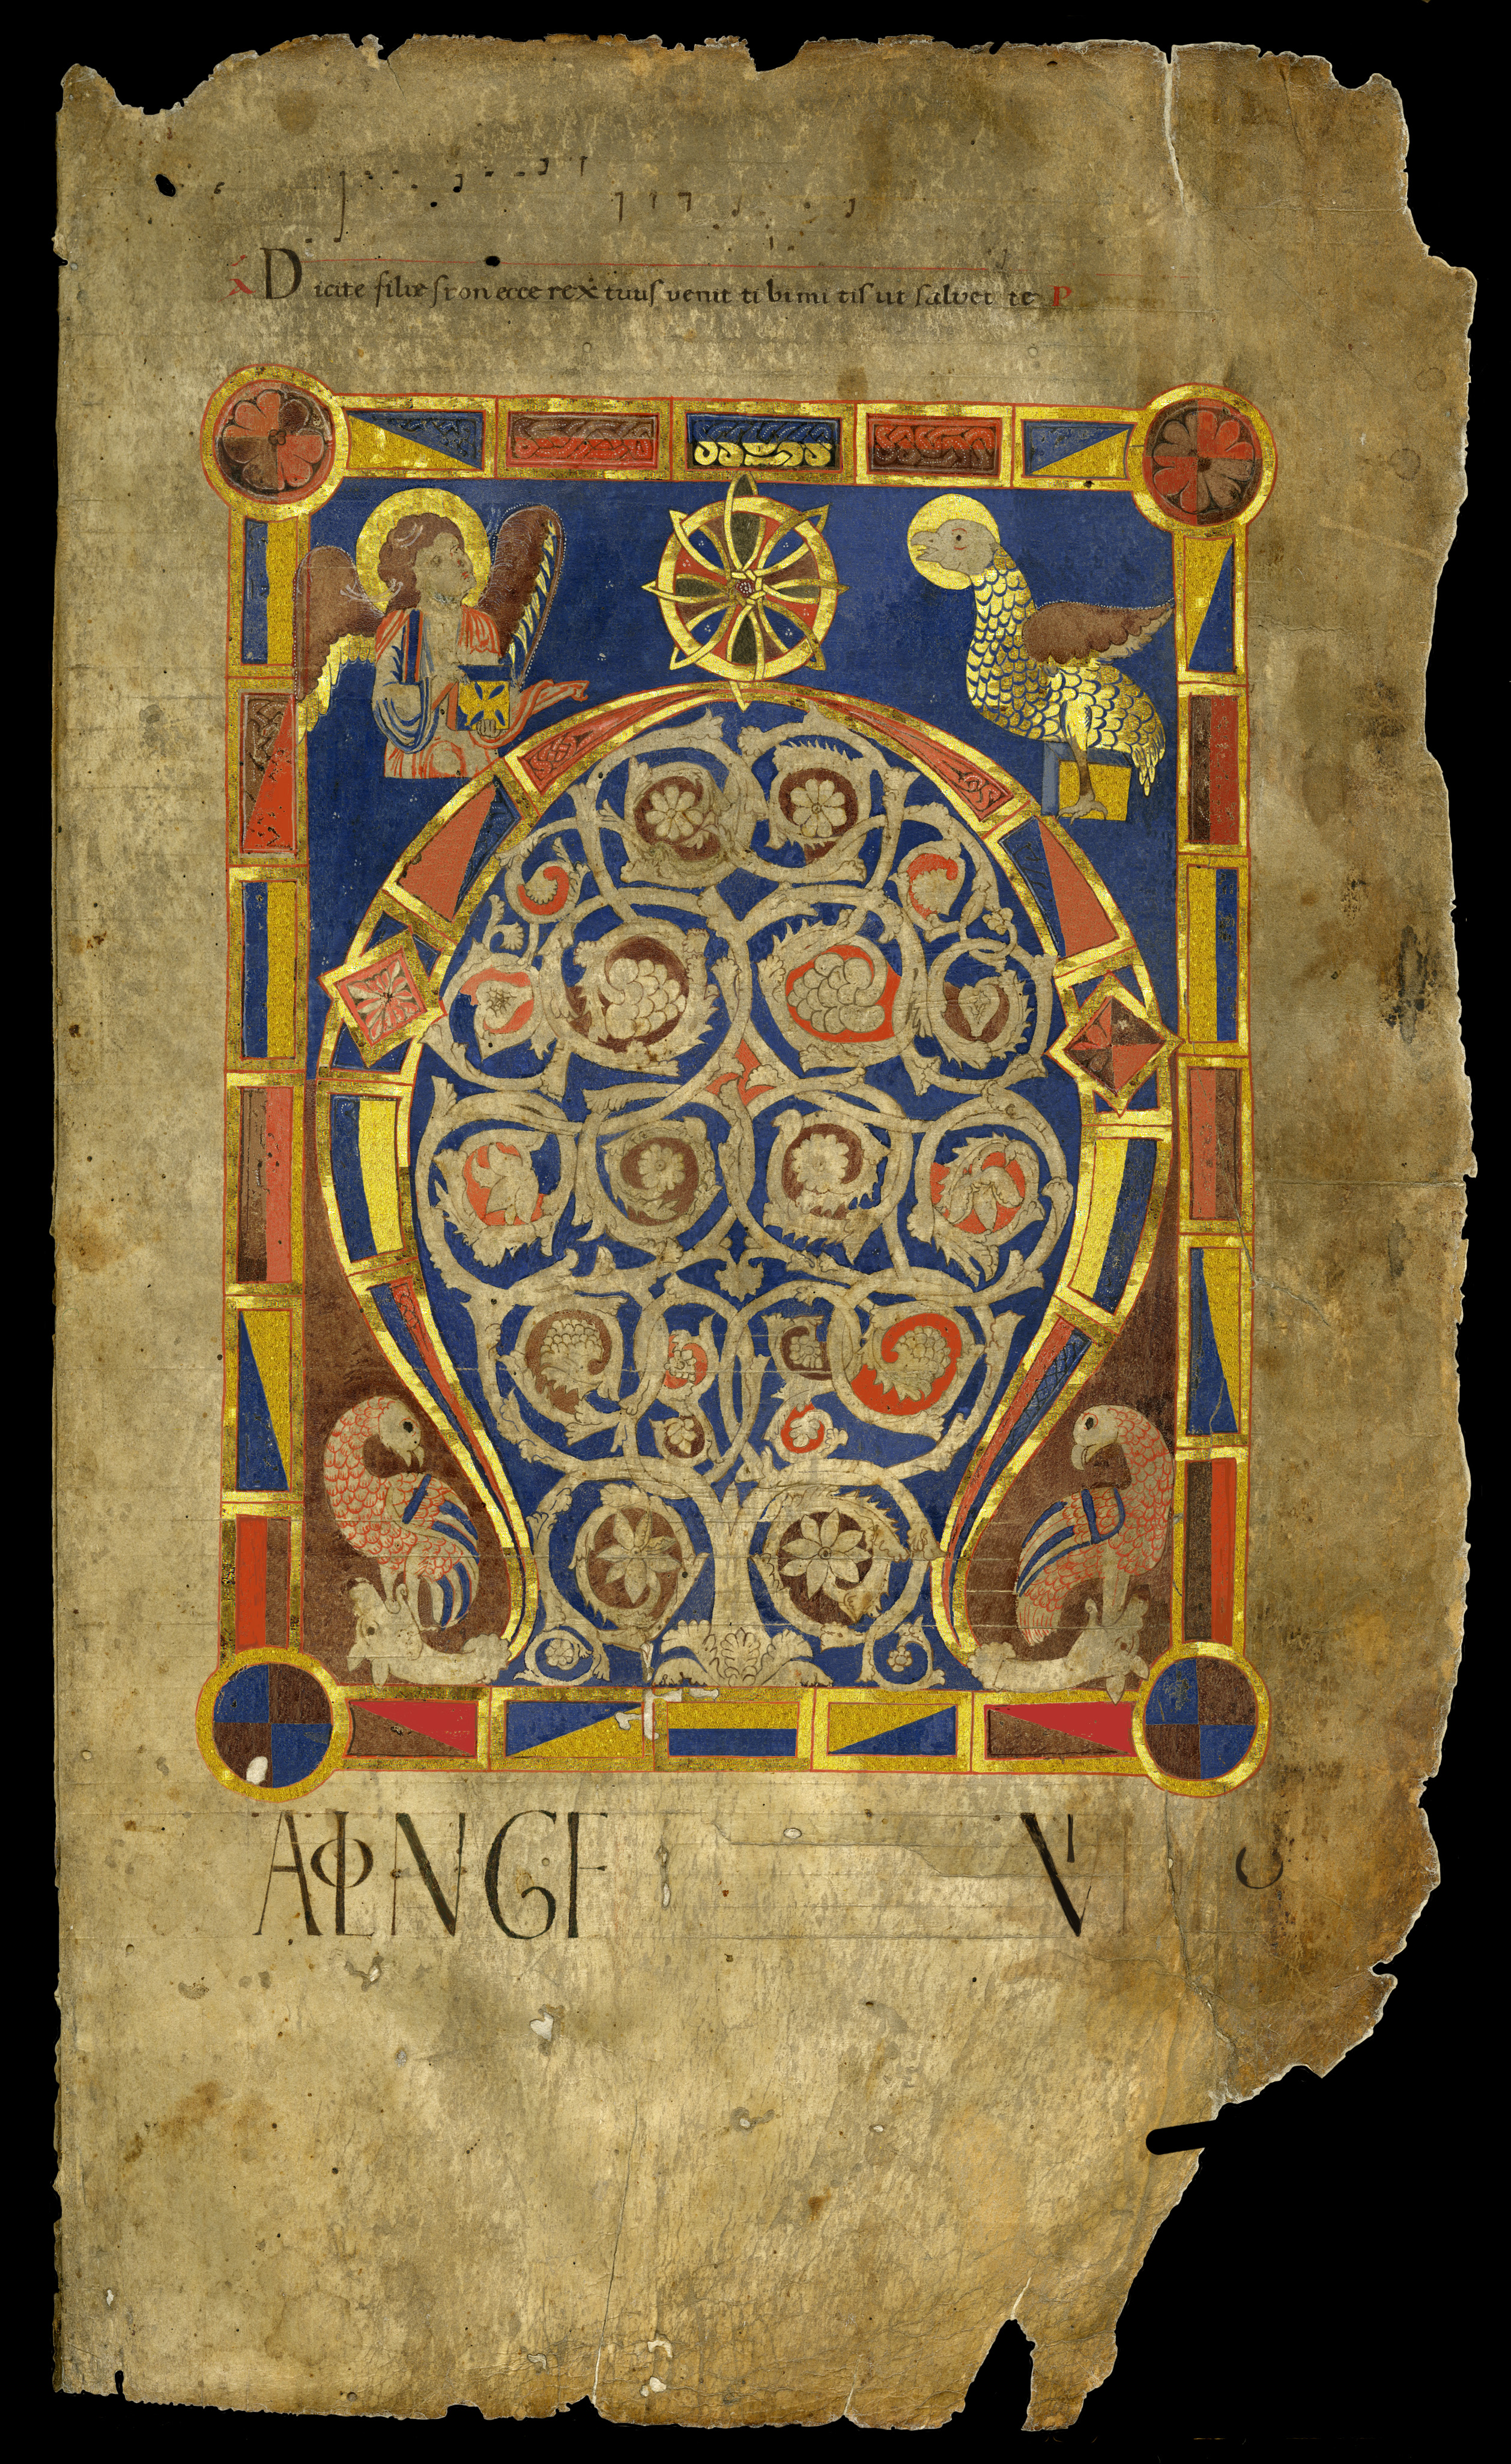 Dicite filiæ sion ecce rex tuus venit tibi mitis ut salvet te P
AΦLNGF V